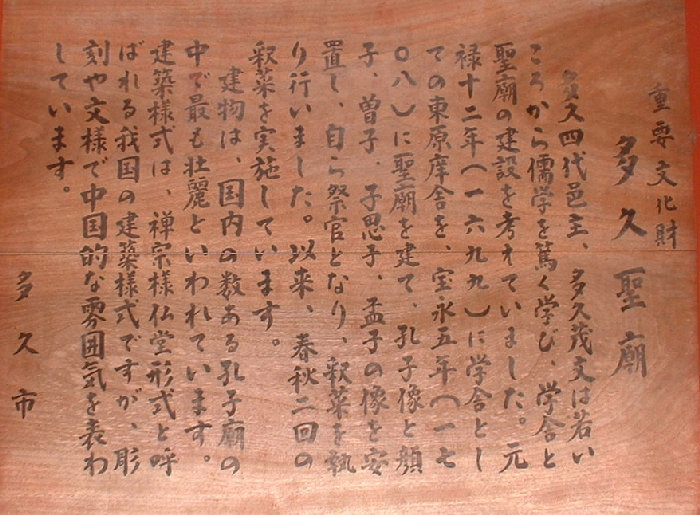 重要文化財
多久聖廟
多久四代邑主、多久茂文は若い
ころから儒学を篤く学び、学舎と
聖廟の建設を考えていました。元
禄十二年(一六九九)に学舎とし
ての東原庠舎を、宝永五年(一七
〇八)に聖廟を建て、孔子像と顔
子、曽子、子思子、孟子の像を安
置し、自ら祭官となり、釈菜を執
り行いました。以来、春秋二回の
釈菜を実施しています。
建物は、国内の数ある孔子廟の
中で最も壮麗といわれています。
建築様式は、禅宗様仏堂形式と呼
ばれる我国の建築様式ですが、彫
刻や文様で中国的な雰囲気を表わ
しています。
多久市